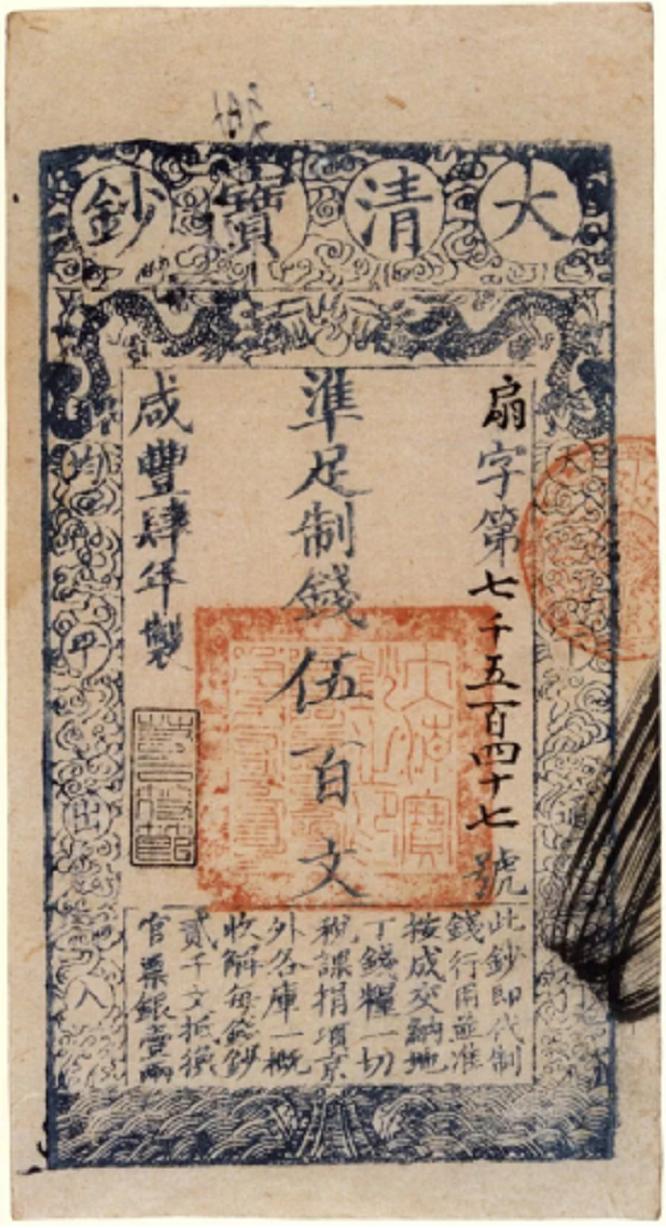 大清寶鈔
扇字第七千五百四十七號
準足制錢伍百文
咸豐肆年製
此鈔即代制
錢行用並准
按成交納地
丁錢糧一切
稅課捐項京
外各庫一概
收解每錢鈔
貳千文抵換
官票銀壹兩
均平出入